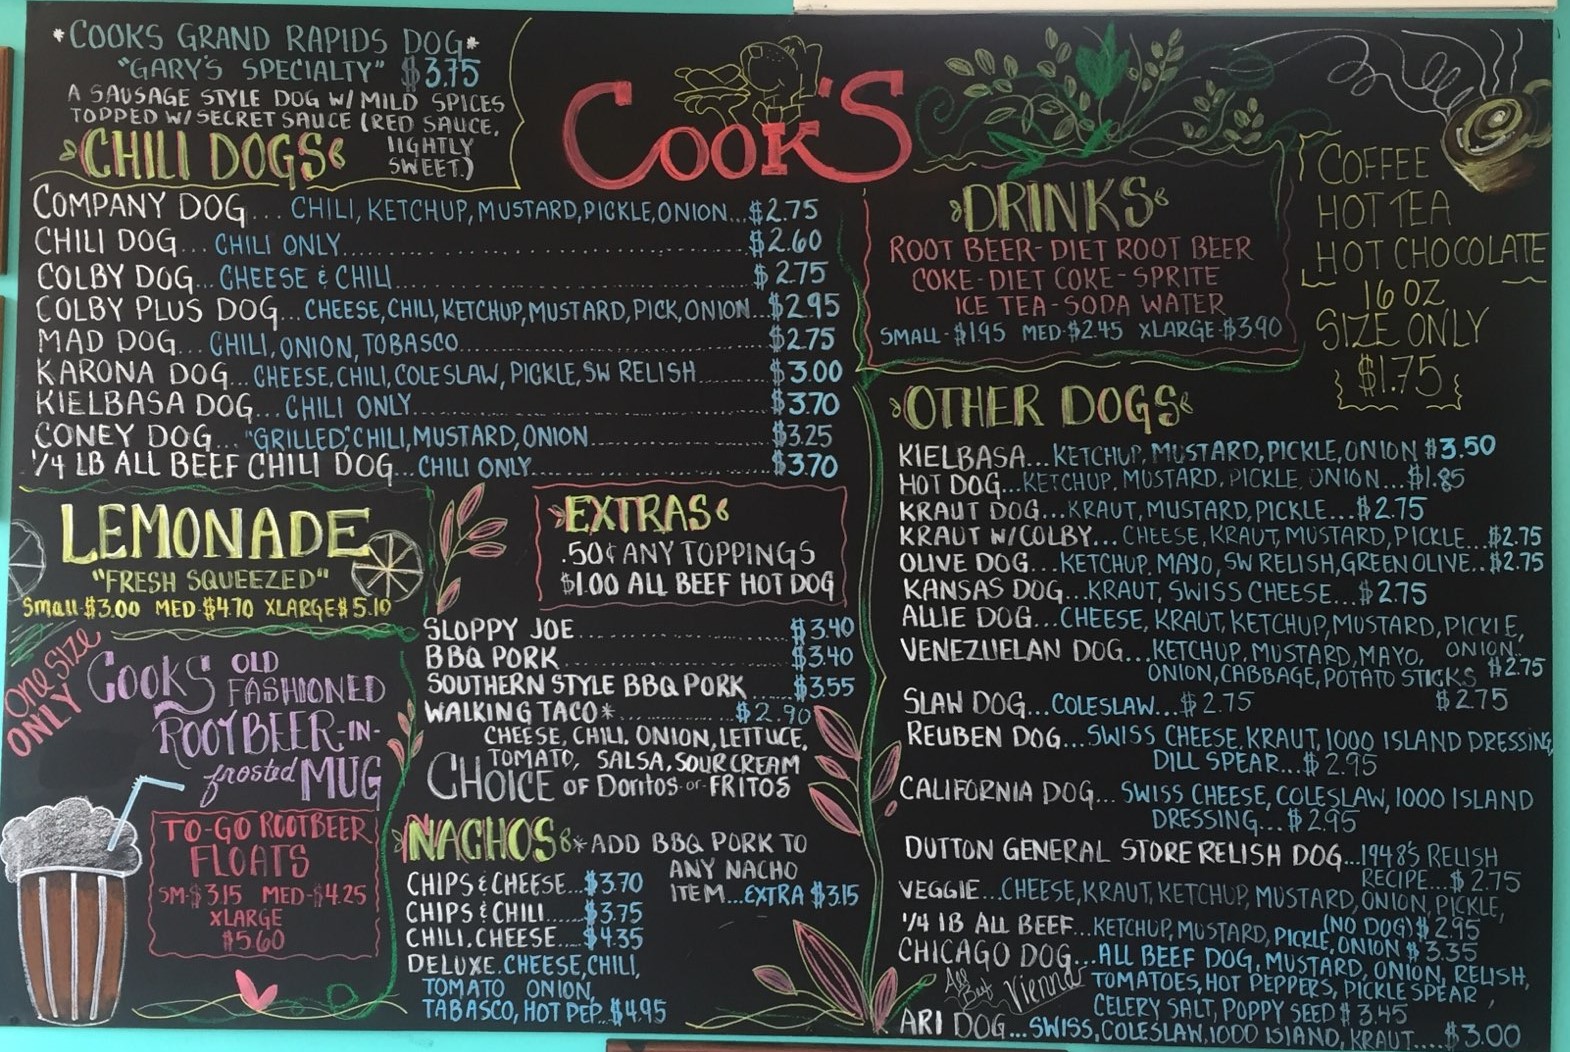 *COOKS GRAND RAPIDS DOG*
"GARY'S SPECIALTY" $3.75
A SAUSAGE STYLE DOG W/ MILD SPICES
TOPPED W/ SECRET SAUCE (RED SAUCE,
LIGHTLY
SWEET.)
CHILI DOGS
COMPANY DOG.... CHILI, KETCHUP, MUSTARD, PICKLE, ONION...$2.75
CHILI DOG... CHILI ONLY...$2.60
COLBY DOG... CHEESE & CHILI...$2.75
COLBY PLUS DOG... CHEESE, CHILI, KETCHUP, MUSTARD, PICK, ONION...$2.95
MAD DOG... CHILI, ONION, TOBASCO...$2.75
KARONA DOG... CHEESE, CHILI, COLESLAW, PICKLE, SW RELISH...$3.00
KIELBASA DOG... CHILI ONLY...$3.70
CONEY DOG... "GRILLED," CHILI, MUSTARD, ONION...$3.25
1/4 LB ALL BEEF CHILI DOG... CHILI ONLY...$3.70
LEMONADE
"FRESH SQUEEZED"
Small-$3.00 MED-$4.70 XLARGE $5.10
ONE SIZE
ONLY
COOKS OLD
FASHIONED
ROOTBEER-IN-
frosted MUG
TO-GO ROOTBEER
FLOATS
SM-$3.15 MED-$4.25
XLARGE
$5.60
COOK'S
EXTRAS
.50¢ ANY TOPPINGS
$1.00 ALL BEEF HOT DOG
SLOPPY JOE...$3.40
BBQ PORK...$3.40
SOUTHERN STYLE BBQ PORK...$3.55
WALKING TACO*...$2.90
CHEESE, CHILI, ONION, LETTUCE,
TOMATO, SALSA, SOUR CREAM
CHOICE OF Doritos -or- FRITOS
NACHOS *ADD BBQ PORK TO
ANY NACHO
ITEM...EXTRA $3.15
CHIPS & CHEESE...$3.70
CHIPS & CHILI...$3.75
CHILI, CHEESE...$4.35
DELUXE. CHEESE, CHILI,
TOMATO ONION,
TABASCO, HOT PEP...$4.95
DRINKS
ROOT BEER-DIET ROOT BEER
COKE-DIET COKE-SPRITE
ICE TEA-SODA WATER
SMALL-$1.95 MED-$2.45 XLARGE-$3.90
COFFEE
HOT TEA
HOT CHOCOLATE
16 OZ
SIZE ONLY
$1.75
OTHER DOGS
KIELBASA...KETCHUP, MUSTARD, PICKLE, ONION $3.50
HOT DOG...KETCHUP, MUSTARD, PICKLE, ONION...$1.85
KRAUT DOG...KRAUT, MUSTARD, PICKLE...$2.75
KRAUT W/COLBY...CHEESE, KRAUT, MUSTARD, PICKLE...$2.75
OLIVE DOG...KETCHUP, MAYO, SW RELISH, GREEN OLIVE..$2.75
KANSAS DOG...KRAUT, SWISS CHEESE...$2.75
ALLIE DOG...CHEESE, KRAUT, KETCHUP, MUSTARD, PICKLE,
ONION...$2.75
VENEZUELAN DOG...KETCHUP, MUSTARD, MAYO,
ONION, CABBAGE, POTATO STICKS $2.75
SLAW DOG...COLESLAW...$2.75
REUBEN DOG...SWISS CHEESE, KRAUT, 1000 ISLAND DRESSING,
DILL SPEAR...$2.95
CALIFORNIA DOG...SWISS CHEESE, COLESLAW, 1000 ISLAND
DRESSING...$2.95
DUTTON GENERAL STORE RELISH DOG...1948'S RELISH
RECIPE...$2.75
VEGGIE...CHEESE, KRAUT, KETCHUP, MUSTARD, ONION, PICKLE,
(NO DOG) $2.95
1/4 lB ALL BEEF...KETCHUP, MUSTARD, PICKLE, ONION $3.35
CHICAGO DOG...ALL BEEF DOG, MUSTARD, ONION, RELISH,
All Beef Vienna TOMATOES, HOT PEPPERS, PICKLE SPEAR,
CELERY SALT, POPPY SEED $3.45
ARI DOG...SWISS, COLESLAW, 1000 ISLAND, KRAUT....$3.00